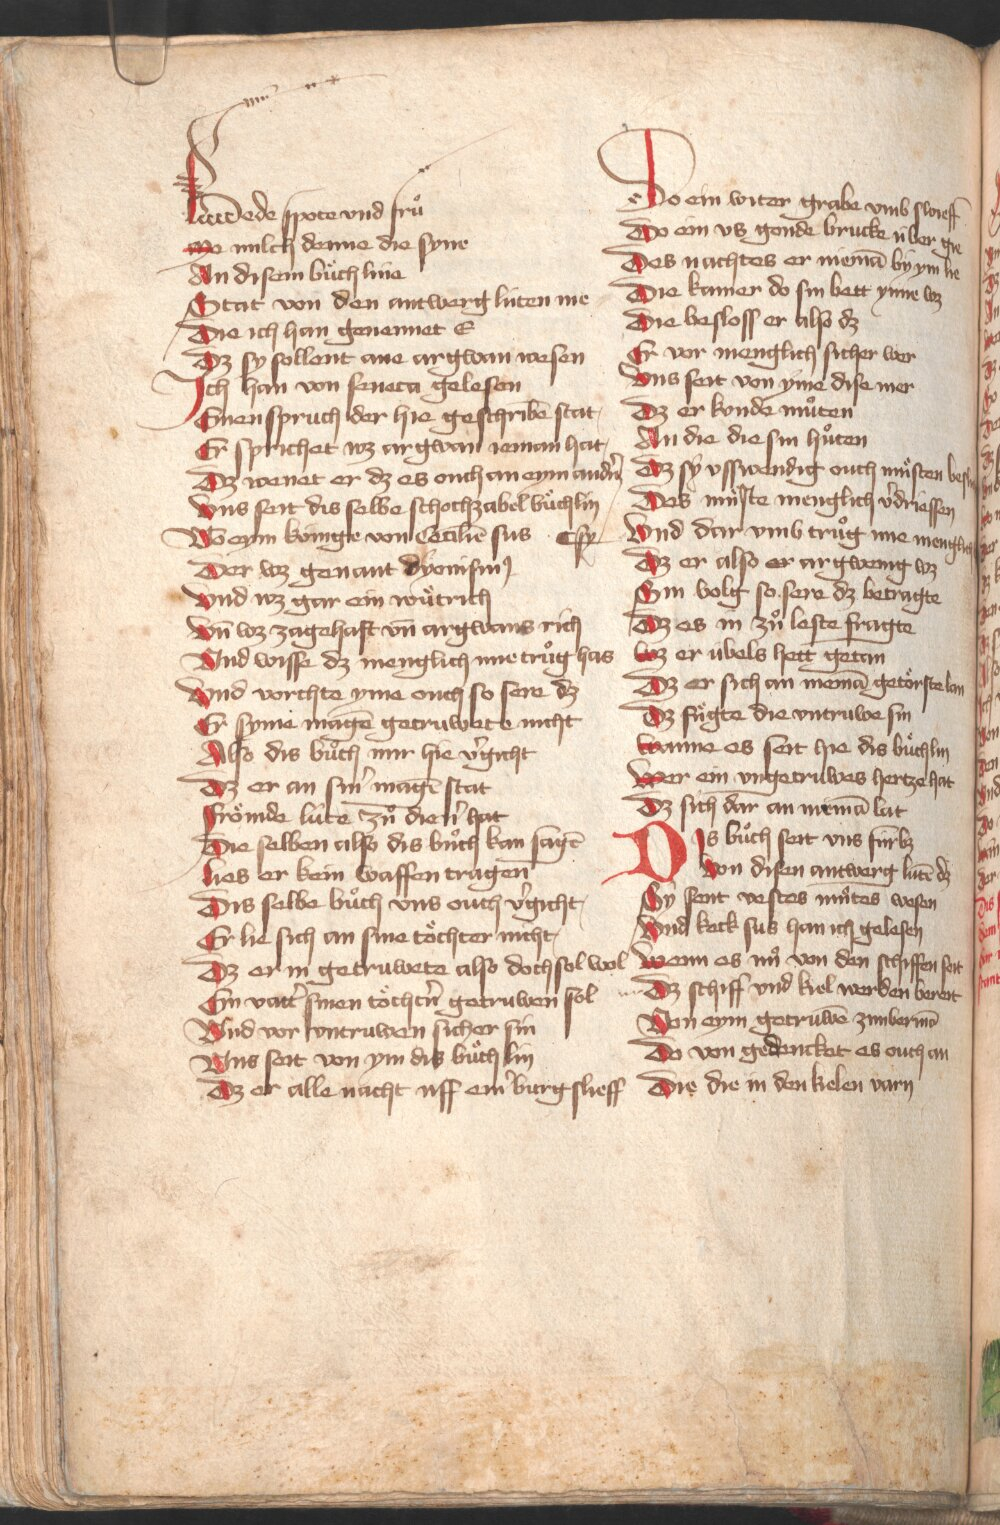 Beede spote vnd fruͦ
me milch denne die syne
An disem buͤchline
Stat von den antwerg lúten me
Die ich han genennet E
Dz sy sollent ane argwan wesen
Ich han von seneca gelesen
Einen spruch der hie geschribē stat
Er sprichet wz argwan ieman hat
Dz wenet er dz es ouch an eym andr̄n
Vns seit dis selbe schochzabel buͤchlin
Wo eym kúnige von Cecilīe sus
Der wz genant dyonisius
Vnd wz gar ein wuͤtrich
Vn̄ wz zagehaft vn̄ argwans rich
Vnd wisse dz menglich ime truͦg has
Vnd vorchte yme ouch so sere dz
Er syme magē getruwete nicht
Also dis buͦch mir hie v̄gicht
Dz er an sin̄ magē stat
Froͤmde lúte zuͦ dien̄ hat
Die selben also dis buͦch kan sagē
Lies er kein waffen tragen
Dis selbe buͦch vns ouch v̄gicht
Er lie sich an sine toͤchter nicht
Dz er in getruwete also doch sol wol
Ein vatt̄ sinen toͤcht̄n getruwen sol
Vnd vor vntruwen sicher sin
Vns seit von ym dis buͤchlin
Dz er alle nacht uff ein̄ burg slieff
Do ein witer grabe vmb swieff
Do ein vs gonde brucke úber gie
Des nachtes er niemā by ym lie
Die kamer do sin bett ynne wz
Die besloss er also dz
Er vor menglich sicher wer
Vns seit von yme dise mer
Dz er konde muͦten
An die die sin huͦten
Dz sy vsswendig ouch muͤsten
Des muͤste menglich v̄driessen
Vnd dar vmb truͦg ime menglich
Dz er also er argwenig wz
Sin volg so sere dz betragte
Dz es in zuͦ leste fragte
Wz er úbels hett getan
Dz er sich an niemā getörste lan
Dz fuͤgte die vntruwe sin
Wanne es seit hie dis buͤchlin
Wer ein vngetruwes hertze hat
Dz sich dar an niemā lat
Dis buͦch seit vns fúrbz
Von disen antwerg lútē dz
Sy sent vestes muͦtes wesen
Vnd keck sus han ich gelesen
Wenn es nuͦ von den schiffen seit
Dz schiff vnd kiel werden bereit
Von eym getruwē zimbermā
Do von gedencket es ouch an
Die die in den kelen varn